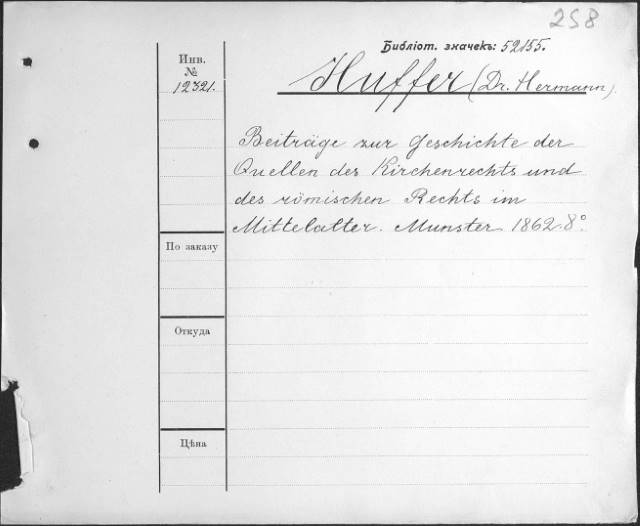 258
Библіот. значекъ: 52155.
Инв.
№
12321.
Huffer (Dr. Hermann).
Beiträge zur Geschichte der
Quellen des Kirchenrechts und
des römischen Rechts im
Mittelalter. Munster 1862. 8°.
По заказу
Откуда
Цѣна